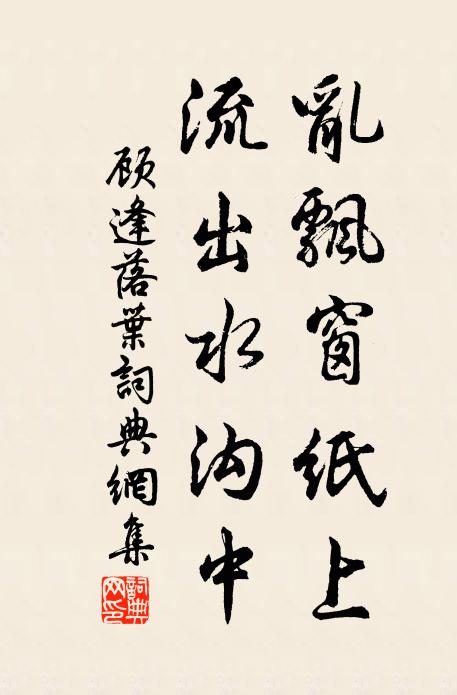 亂飄窗紙上
流出水沟中
顾逢落葉詞典網集
詞典網印